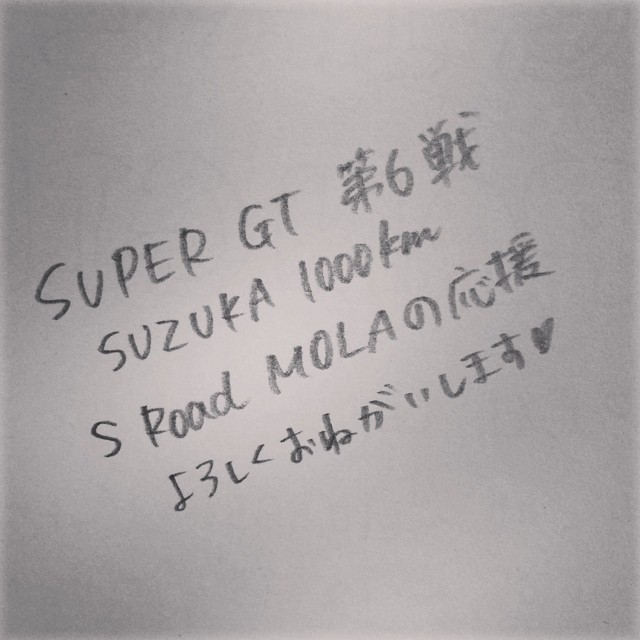 SUPER GT 第6戦
SUZUKA 1000km
S Road MOLAの応援
よろしくおねがいします♥